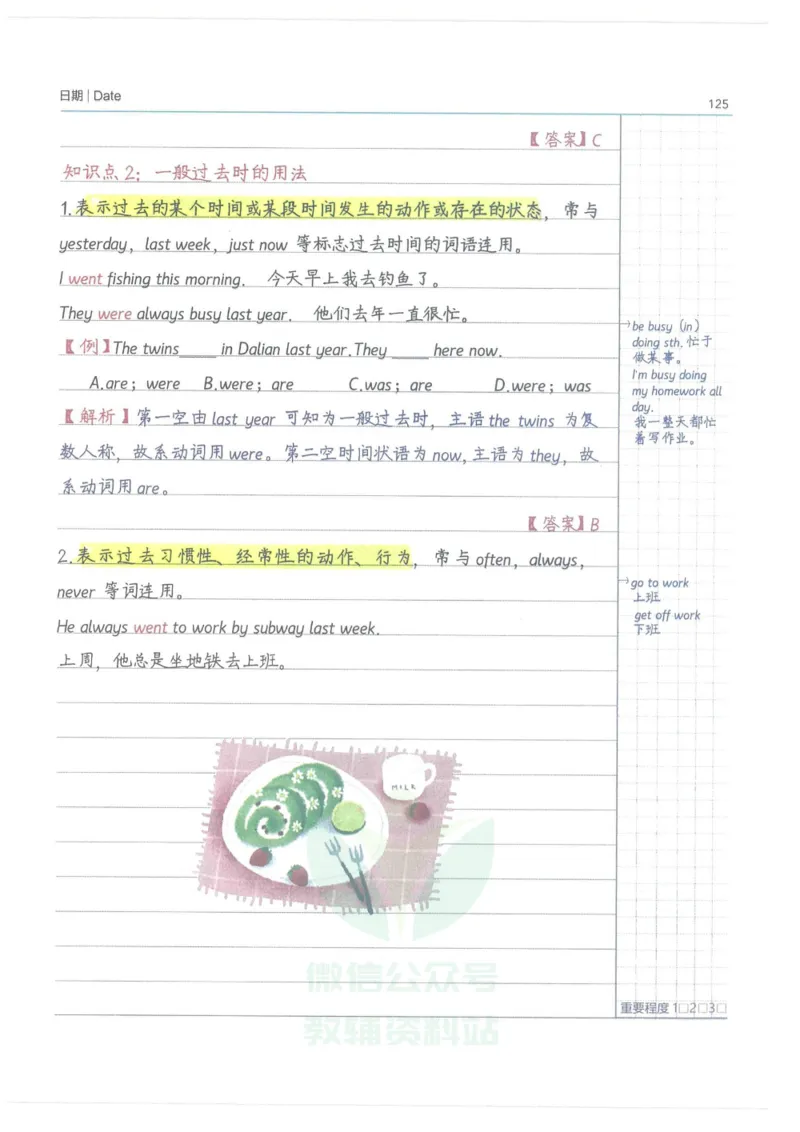 日期 | Date
125
【答案】C
知识点 2：一般过去时的用法
1.表示过去的某个时间或某段时间发生的动作或存在的状态，常与
yesterday，last week，just now 等标志过去时间的词语连用。
I went fishing this morning. 今天早上我去钓鱼了。
They were always busy last year. 他们去年一直很忙。
【例】The twins____ in Dalian last year.They ____ here now.
A.are；were B.were；are C.was；are D.were；was
【解析】第一空由 last year 可知为一般过去时，主语 the twins 为复
数人称，故系动词用 were。第二空时间状语为 now，主语为 they，故
系动词用 are。
【答案】B
2.表示过去习惯性、经常性的动作、行为，常与 often，always，
never 等词连用。
He always went to work by subway last week.
上周，他总是坐地铁去上班。
→be busy（in）
doing sth. 忙于
做某事。
I'm busy doing
my homework all
day.
我一整天都忙
着写作业。
→go to work
上班
get off work
下班
MILK
微信公众号
教辅资料站
重要程度 1□2□3□